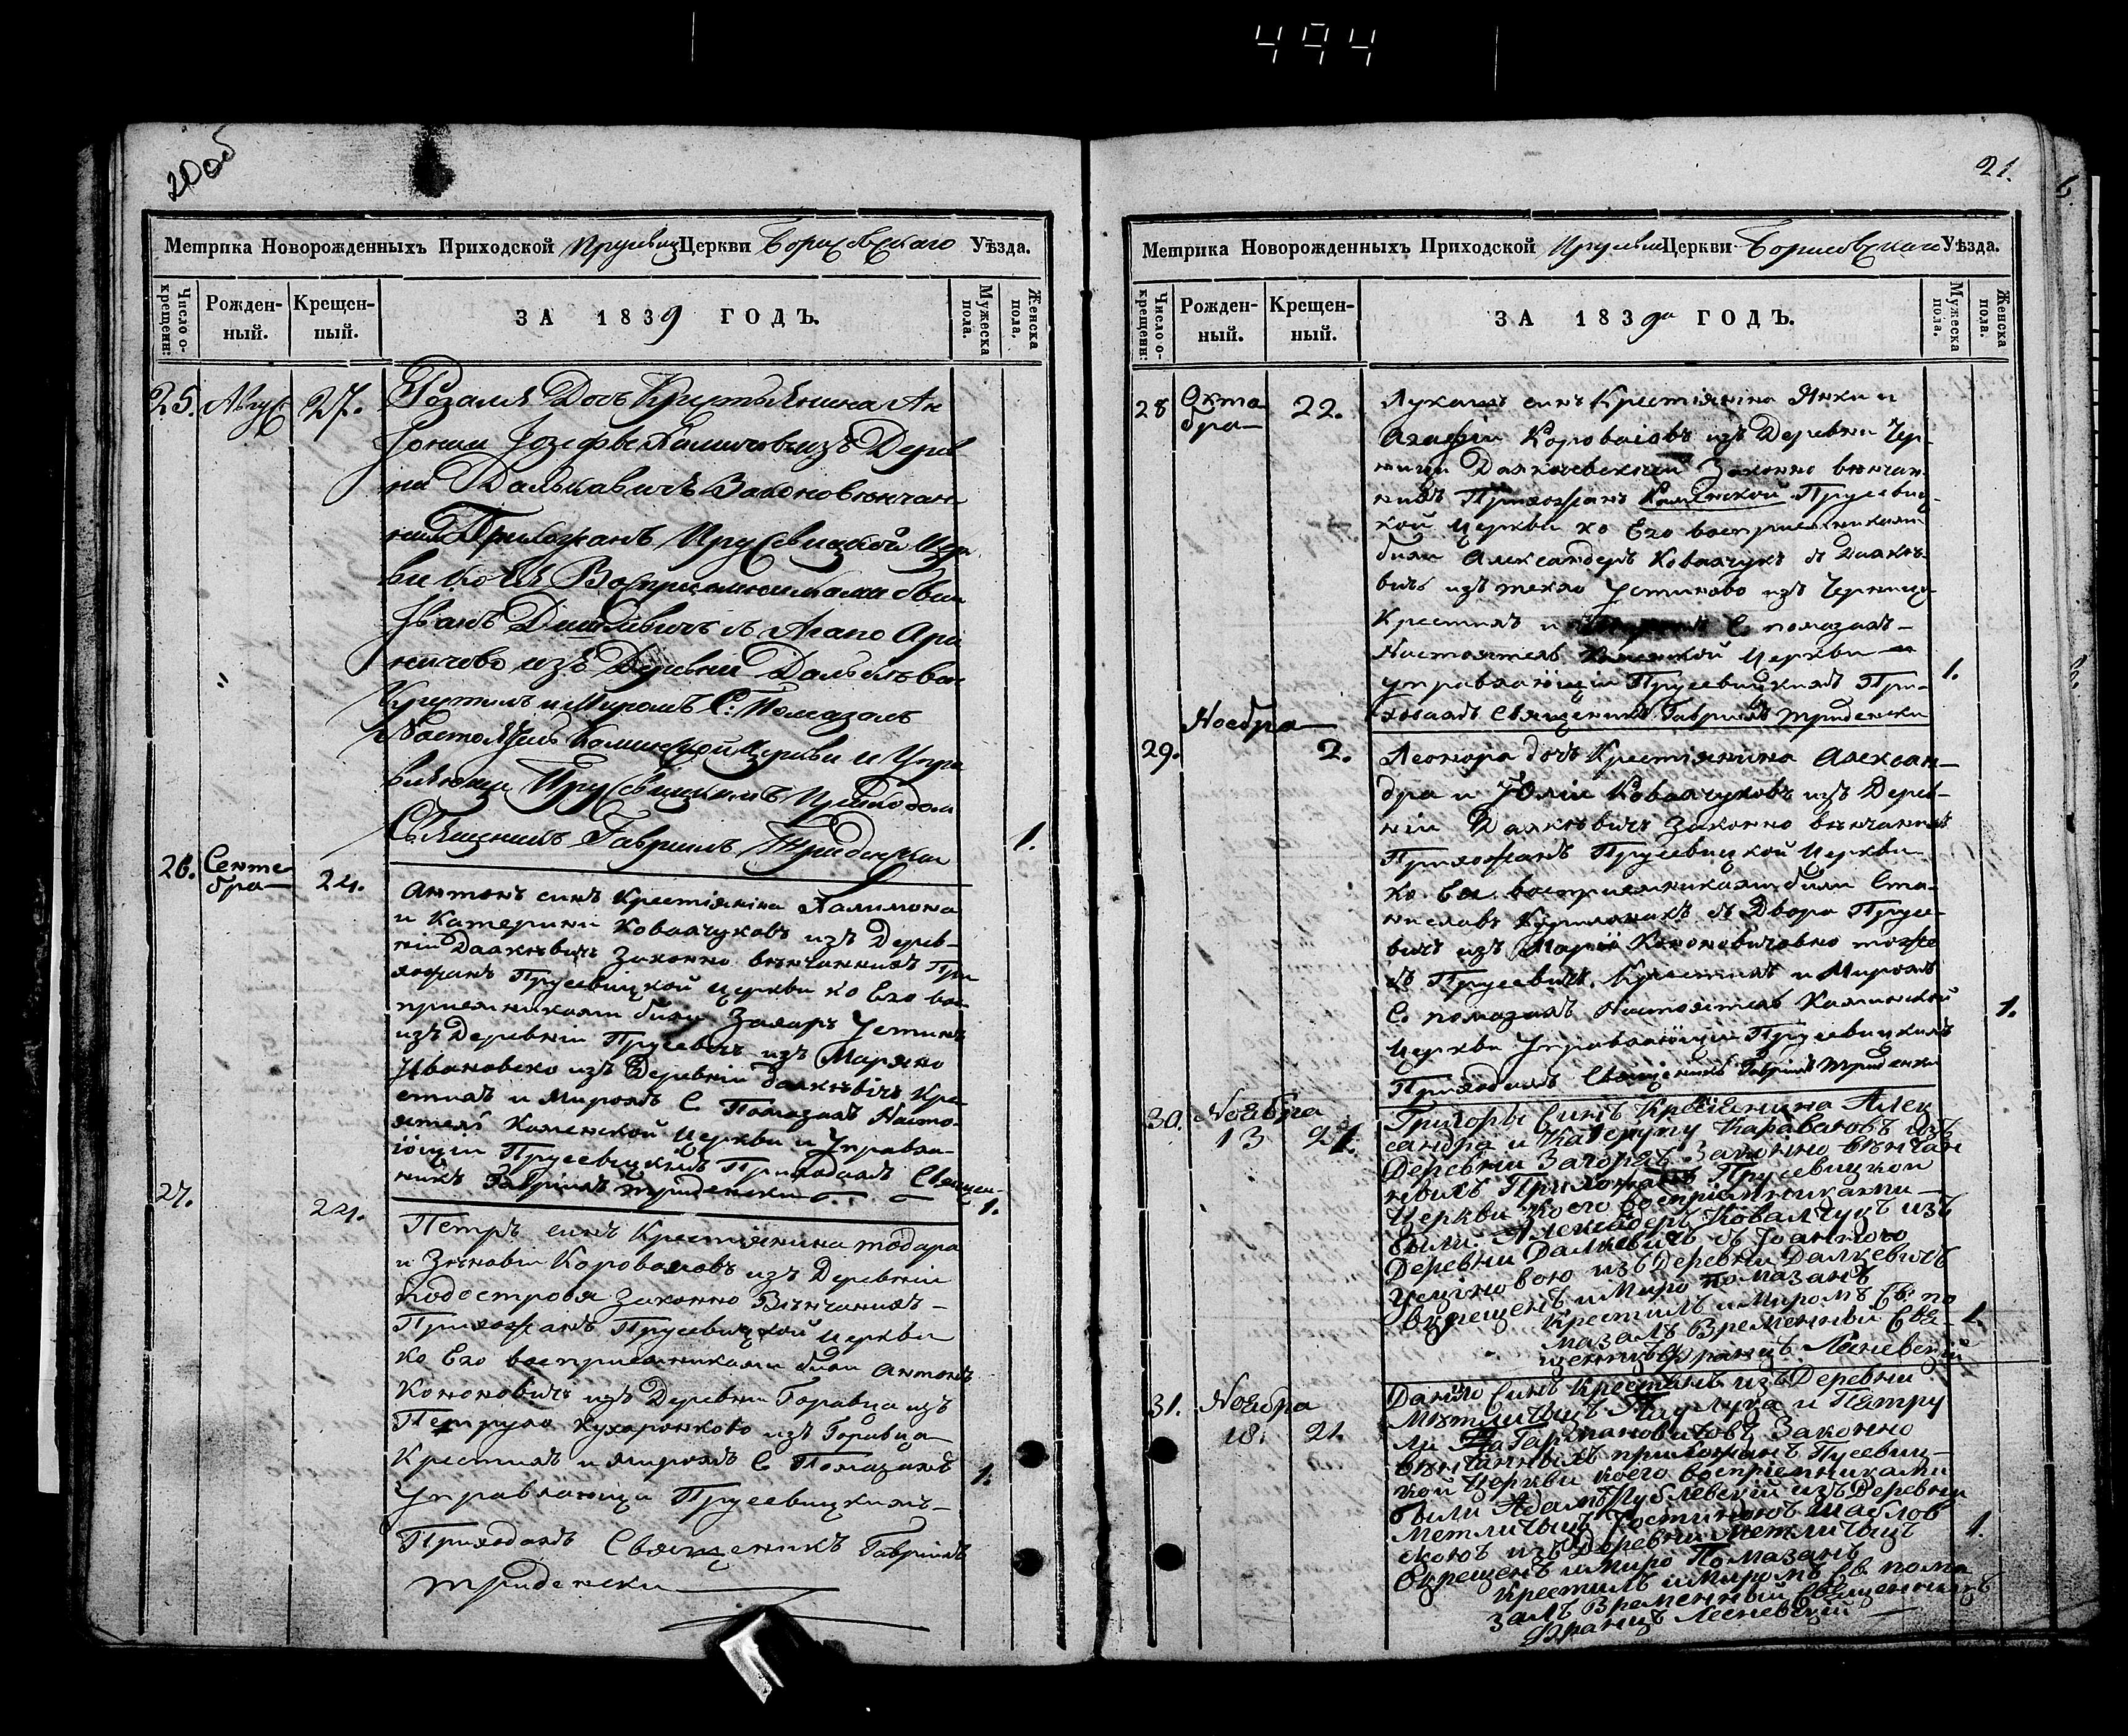 494
20об
Метрика Новорожденныхъ Приходской Прусевиц Церкви Борисовскаго Уѣзда.
Число о-крещенн:
Рожден-ный.
Крещен-ный.
ЗА 1839 ГОДЪ.
Мужеска пола.
Женска пола.
25. Август 27.
Розалія Доч Крестьянина Ан
тонія Іозефы из Дерев
ни Далькавичъ Законовенчан
ных Прихожанъ Прусевицкой Цер
ви Коея Восприемниками были
Иванъ и Агапо
из Деревни
Крестилъ и Миромъ С: Помазалъ
Настоятель Каминской Церкви и Упра
вляющи Прусевицкимъ Приходом
Священикъ Гавриилъ Тридентски
1.
26. Сенте
бра 24.
Антонъ синъ Крестіяніна Халимона
и Катерини Ковалчуковъ изъ Дерев-
ніи Далкѣвичъ Законно вѣнчаннихъ При
хожанъ Прусевицкой Церкви ко Его вос
приемниками били Захаръ Устинъ
изъ Деревніи Прусевичъ изъ Маряно
Ивановско изъ Деревніи Далкѣвичъ Кре
стилъ и Миромъ С. Помазалъ Насто-
ятель Каменской Церкви и Управля-
ющіи Прусевицкимъ Приходамъ Священ-
никъ Гавріилъ Тридентски
1.
27. 24.
Петръ синъ Крестіянина Тодара
и Зѣновіи Короваювъ изъ Деревніи
Подостровя Законно Вѣнчанихъ
Прихожанъ Прусевицкой Церкви
ко Его восприемниками били Антонъ
Кононовичъ изъ Деревни Горавца изъ
Петруло Кухаронково изъ Горавца
Крестилъ и миромъ С Помазалъ
1.
Управляющи Прусевицкимъ
Приходамъ Священикъ Гавріилъ
Тридентски
21.
Метрика Новорожденныхъ Приходской Прусевиц Церкви Борисовскаго Уѣзда.
Число о-крещенн:
Рожден-ный.
Крещен-ный.
ЗА 1839го ГОДЪ.
Мужеска пола.
Женска пола.
28 Окта
бра 22.
Лукашъ синъ Крестіяніна Янки и
Агафіи Короваіовъ изъ Деревни Чер-
ници Законно вѣнчан
нихъ Прихожанъ Каменской Прусевиц-
кой Церкви ко Его восприемниками
били Александеръ Ковалчукъ з Далкѣ-
вичъ изъ текло Устиново изъ Черници
Крестилъ и С помазалъ
Настоятель Каменской Церкви и
управляющіи Прусевицкимъ При-
ходамъ Священикъ Гавриилъ Тридентски
1.
29. Ноебра 2.
Леонора дочъ Крестіянина Алексан-
дра и Юліи Ковалчуковъ изъ Дерев-
ніи Далкѣвичъ Законно вѣнчаннихъ
Прихожанъ Прусевицкой Церкви
ко Ея восприемниками били Ста-
ниславъ з Двора Прусе-
вичъ изъ Маріи Кононовичовно тоже
з Прусевичъ. Крестилъ и Миромъ
С. помазалъ Настоятель Каминской
Церкви Управляющіи Прусевицкимъ
Приходамъ Священикъ Гавріилъ Тридентски
1.
30. Ноября
13 21.
Григоры Синъ Крестянина Алек
сандра и Катерину Караваювъ изъ
Деревни Загорья Законно вѣнчан
невихъ Прихожанъ Прусевицкой
Церкви Коего восприемниками
были: Александеръ Ковалчукъ изъ
Деревни Далкевичъ съ Іоанною
Усціновою изъ Деревни Далкевичъ
Окрещенъ и Миро помазанъ
Крестилъ и Миромъ Св: по
мазалъ Временный Свя-
щенникъ Францъ Лесневскій
1.
31. Ноября
18. 21.
Данііло Синъ Крестянъ изъ Деревни
Мѣтличыцъ Паулука и Пятру
ли Гармановичовъ Законно
вѣнчанныхъ прихожанъ Пусевиц-
кой Церкви коего восприемниками
были Адамъ изъ Деревни
Метличыцъ Іостиною Шаблов
скою изъ Деревни Метличыцъ
Окрещенъ и Миро Помазанъ
Крестилъ и Миромъ Св. пома
залъ Временный Священникъ
Францъ Лесневскій
1.